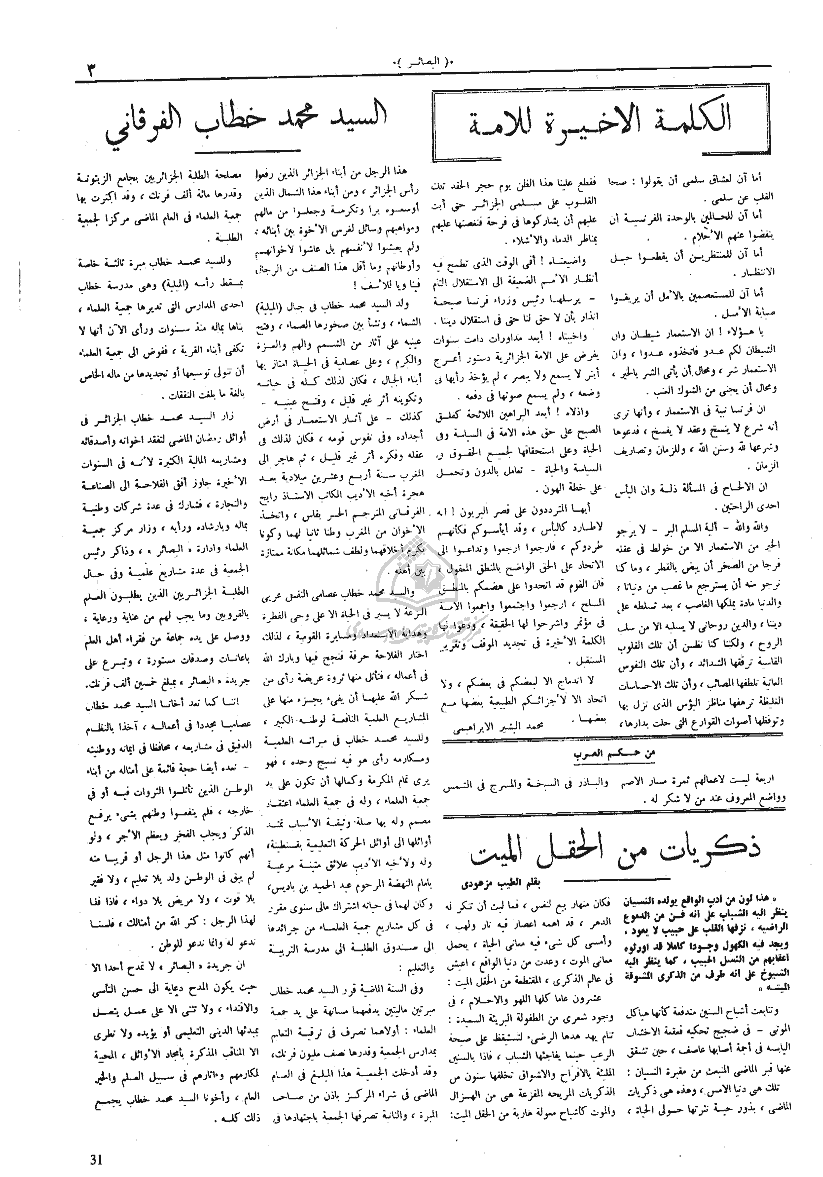 ٠( البصائر )٠
٣
الكلمة الاخيرة للامة
أما آن لعشاق سلمى أن يقولوا : صحا
القلب عن سلمى .
أما آن للحالمين بالوحدة الفرنسية أن
ينفضوا عنهم الأحلام .
أما آن للمنتظرين أن يقطعوا حبل
الانتظار .
أما آن للمستعصمين بالأمل أن يريقوا
صبابة الأمل .
يا هؤلاء ! ان الاستعمار شيطان وان
الشيطان لكم عدو فاتخذوه عدوا ، وان
الاستعمار شر ، ومحال أن يأتى الشر بالخير ،
ومحال أن يجنى من الشوك العنب .
ان فرنسا نية فى الاستعمار ، وأنها ترى
أنه شرع لا ينسخ وعقد لا يفسخ ، فدعوها
وشرعها لله وسنن الله ، وللزمان وتصاريف
الزمان .
ان الالحاح فى المسألة ذلة وان اليأس
احدى الراحتين .
والله والله – ألية المسلم البر – لا يرجو
الخير من الاستعمار الا من خولط فى عقله
فرجا من الصخر أن يبض بالقطر ، وما كنا
نرجو منه أن يسترجع ما غصب من دنيانا ،
والدنيا مادة يملكها الغاصب ، بعد تسلطه على
ديننا ، والدين روحانى لا يسلبه الا من سلب
الروح ، ولكننا كنا نظن أن تلك القلوب
القاسية ترققها الشدائد ، وأن تلك النفوس
العاتية تلطفها المصائب ، وأن تلك الاحساسات
الغليظة ترهفها مناظر البؤس الذى نزل بها
وتوقظها أصوات القوارع التى حلت بدارها ،
فقطع علينا هذا الظن يوم حجر الحقد تلك
القلوب على مسلمى الجزائر حتى أبت
عليهم أن يشاركوها فى فرحة فنغصتها عليهم
بمناظر الدماء والأشلاء .
واضيعتاه ! أفى الوقت الذى تطمح فيه
أنظار الأمم الضعيفة الى الاستقلال التام
– يرسلها رئيس وزراء فرنسا صيحة
انذار بأن لا حق لنا حتى فى استقلال ديننا .
واخيبتاه ! أبعد مداورات دامت سنوات
يفرض على الامة الجزائرية دستور أعرج
أبتر لا يسمع ولا يبصر ، لم يؤخذ رأيها فى
وضعه ، ولم يسمع صوتها فى دفعه .
واذلاه ! أبعد البراهين اللائحة كفلق
الصبح على حق هذه الامة فى السياسة وفى
الحياة وعلى استحقاقها لجميع الحقوق فى
السياسة والحياة – تعامل بالدون وتحمل
على خطة الهون .
أيها المترددون على قصر البربون ! انه
لاطارد كاليأس ، وقد أيأسوكم فكأنهم
طردوكم ، فارجعوا ارجعوا وتداعوا الى
الاتحاد على الحق الواضح بالمنطق المعقول ،
فان القوم قد اتحدوا على هضمكم بالمنطق
المسلح ، ارجعوا واجتمعوا واجمعوا الامة
فى مؤتمر واشرحوا لها الحقيقة ، ودعوا لها
الكلمة الأخيرة فى تحديد الموقف وتقرير
المستقبل .
لا اندماج الا لبعضكم فى بعضكم ، ولا
اتحاد الا لأجزائكم الطبيعية بعضها مع
بعضها .
محمد البشير الابراهيمى
من حكم العرب
اربعة ليست لاعمالهم ثمرة مسار الاصم
والباذر فى السبخة والمسرج فى الشمس
وواضع المعروف عند من لا شكر له .
ذكريات من الحقل الميت
بقلم الطيب مزهودى
« هذا لون من ادب الواقع يولده النسيان
ينظر اليه الشباب على انه فن من الدموع
الراضية ، نزفها القلب على حبيب لا يعود .
ويجد فيه الكهول وجودا كاملا قد اورثوه
اعقابهم من النسل الحبيب ، كما ينظر اليه
الشيوخ على انه طرف من الذكرى المشوقة
الميتة »
وتتابعت أشباح السنين متدفعة كأنها هياكل
الموتى – فى ضجيج تحكيه قعقعة الاخشاب
اليابسة فى أجمة أصابها عاصف ، حين تشقق
عنها قبر الماضى المنبعث من مقبرة النسيان :
تلك هى دنيا الامس ، وهذه هى ذكريات
الماضى ، بذور حية نثرتها حولى الحياة ،
فكان منهار بيع لنفس ، فما لبث أن تنكر له
الدهر ، قد اهمه اعصار فيه نار ولهب ،
وأمسى كل شىء فيه معانى الحياة ، يحمل
معانى الموت ، وعدت من دنيا الواقع ، أعيش
فى عالم الذكرى ، المقتطعة من الحقل الميت :
عشرون عاما كلها اللهو والاحلام ، فى
وجود شعرى من الطفولة البريئة السعيدة :
تنام يهد هدها الرضى لتستيقظ على صيحة
الرعب حينما يفاجئها الشباب ، فاذا بالسنين
المليئة بالأفراح والاشواق تخلفها سنون من
الذكريات المريحه المفزعة هى من الهزال
والموت كأشباح معولة هاربة من الحقل الميت:
السيد محمد خطاب الفرقاني
هذا الرجل من أبناء الجزائر الذين رفعوا
رأس الجزائر ، ومن أبناء هذا الشمال الذين
أوسعوه برا وتكرمة وجعلوا من مالهم
ومواهبهم وسائل لغرس الأخوة بين أبنائه ،
ولم يعيشوا لأنفسهم بل عاشوا لاخوانهم
وأوطانهم وما أقل هذا الصنف من الرجال
فينا ويا للأسف !
ولد السيد محمد خطاب فى جبال (الميلية)
الشماء ، ونشأ بين صخورها الصماء ، وفتح
عينيه على آثار من الشمم والهم والعزة
والكرم ، وعلى عصامية فى الحياة امتاز بها
أبناء الجبال ، فكان لذلك كله فى حياته
وتكوينه أثر غير قليل ، وفتح عينيه –
كذلك – على آثار الاستعمار فى أرض
أجداده وفى نفوس قومه ، فكان لذلك فى
عقله وفكره أثر غير قليل ، ثم هاجر الى
المغرب سنة أربع وعشرين ميلادية بعد
هجرة أخيه الأديب الكاتب الاستاذ رابح
الفرقانى المترجم الحسر بفاس ، واتخذ
الأخوان من المغرب وطنا ثانيا لهما وكونا
بكرم أخلاقهما ولطف شمائلهما مكانة ممتازة
بين أهله .
والسيد محمد خطاب عصامى النفس عربى
النزعة لا يسير فى الحياة الا على وحى الفطرة
وهداية الاستعداد ومسايرة القومية ، لذلك
اختار الفلاحة حرفة فنجح فيها وبارك الله
فى أعماله ، فتأثل منها ثروة عريضة رأى من
شكر الله عليها أن يفىء بجزء منها على
المشاريع العلمية النافعة لوطنه الكبير ،
وللسيد محمد خطاب فى مبراته العلمية
ومكارمه رأى هو فيه نسيج وحده ، فهو
يرى تمام المكرمة وكمالها أن تكون على يد
جمعية العلماء ، وله فى جمعية العلماء اعتقاد
مصمم وله بها صلة وثيقة الأسباب تمتد
أوائلها الى أوائل الحركة التعليمية بقسنطينة،
وله ولأخيه الأديب علائق متينة مرعية
بامام النهضة المرحوم عبد الحميد بن باديس،
وكان لهما فى حياته اشتراك مالى سنوى مقرر
فى كل مشاريع جمعية العلماء من جرائدها
الى صندوق الطلبة الى مدرسة التربية
والتعليم :
وفى السنة الماضية قرر السيد محمد خطاب
مبرتين ماليتين يدفعهما مسانهة على يد جمعية
العلماء : أولاهما تصرف فى ترقية التعليم
بمدارس الجمعية وقدرها نصف مليون فرنك،
وقد أدخلت الجمعية هذا المبلغ فى العام
الماضى فى شراء المركز باذن من صاحب
المبرة ، والثانية تصرفها الجمعية باجتهادها فى
مصلحة الطلبة الجزائريين بجامع الزيتونة
وقدرها مائة ألف فرنك ، وقد اكترت بها
جمعية العلماء فى العام الماضى مركزا لجمعية
الطلبة .
وللسيد محمد خطاب مبرة ثالثة خاصة
بمسقط رأسه (الميلية) وهى مدرسة خطاب
احدى المدارس التى تديرها جمعية العلماء ،
بناها بماله منذ سنوات ورأى الآن أنها لا
تكفى أبناء القرية ، ففوض الى جمعية العلماء
أن تتولى توسيعها أو تجديدها من ماله الخاص
بالغة ما بلغت النفقات .
زار السيد محمد خطاب الجزائر فى
أوائل رمضان الماضى لتفقد اخوانه وأصدقائه
ومشاريعه المالية الكثيرة لأنه فى السنوات
الأخيرة جاوز أفق الفلاحة الى الصناعة
والتجارة ، فشارك فى عدة شركات وطنية
بماله وبارشاده ورأيه ، وزار مركز جمعية
العلماء وادارة « البصائر » ، وذاكر رئيس
الجمعية فى عدة مشاريع علمية وفى حال
الطلبة الجزائريين الذين يطلبون العلم
بالقرويين وما يجب لهم من عناية ورعاية ،
ووصل على يده جماعة من فقراء أهل العلم
باعانات وصدقات مستورة ، وتبرع على
جريدة « البصائر » بمبلغ خمسين ألف فرنك.
اننا كما نعد أخانا السيد محمد خطاب
عصاميا مجددا فى أعماله ، آخذا بالنظام
الدقيق فى مشاريعه ، محافظا فى ايمانه ووطنيته
– نعده أيضا حجة قائمة على أمثاله من أبناء
الوطن الذين تأثلوا الثروات فيه أو فى
خارجه ، فلم ينفعوا وطنهم بشىء يرفع
الذكر ويجلب الفخر ويعظم الأجر ، ولو
أنهم كانوا مثل هذا الرجل أو قريبا منه
لم يبق فى الوطن ولد بلا تعليم ، ولا فقير
بلا قوت ، ولا مريض بلا دواء ، فاذا قلنا
لهذا الرجل : كثر الله من أمثالك ، فلسنا
ندعو له وانما ندعو للوطن .
ان جريدة « البصائر » لا تمدح أحدا الا
حيث يكون المدح دعاية الى حسن التأسى
والاقتداء ، ولا تثنى الا على عمل يتصل
بمبدئها الدينى التعليمى أو يؤيده ولا تطرى
الا المناقب المذكرة بأمجاد الأوائل ، المحيية
لمكارمهم ومآثرهم فى سبيل العلم والخير
العام ، وأخونا السيد محمد خطاب يجمع
ذلك كله .
31